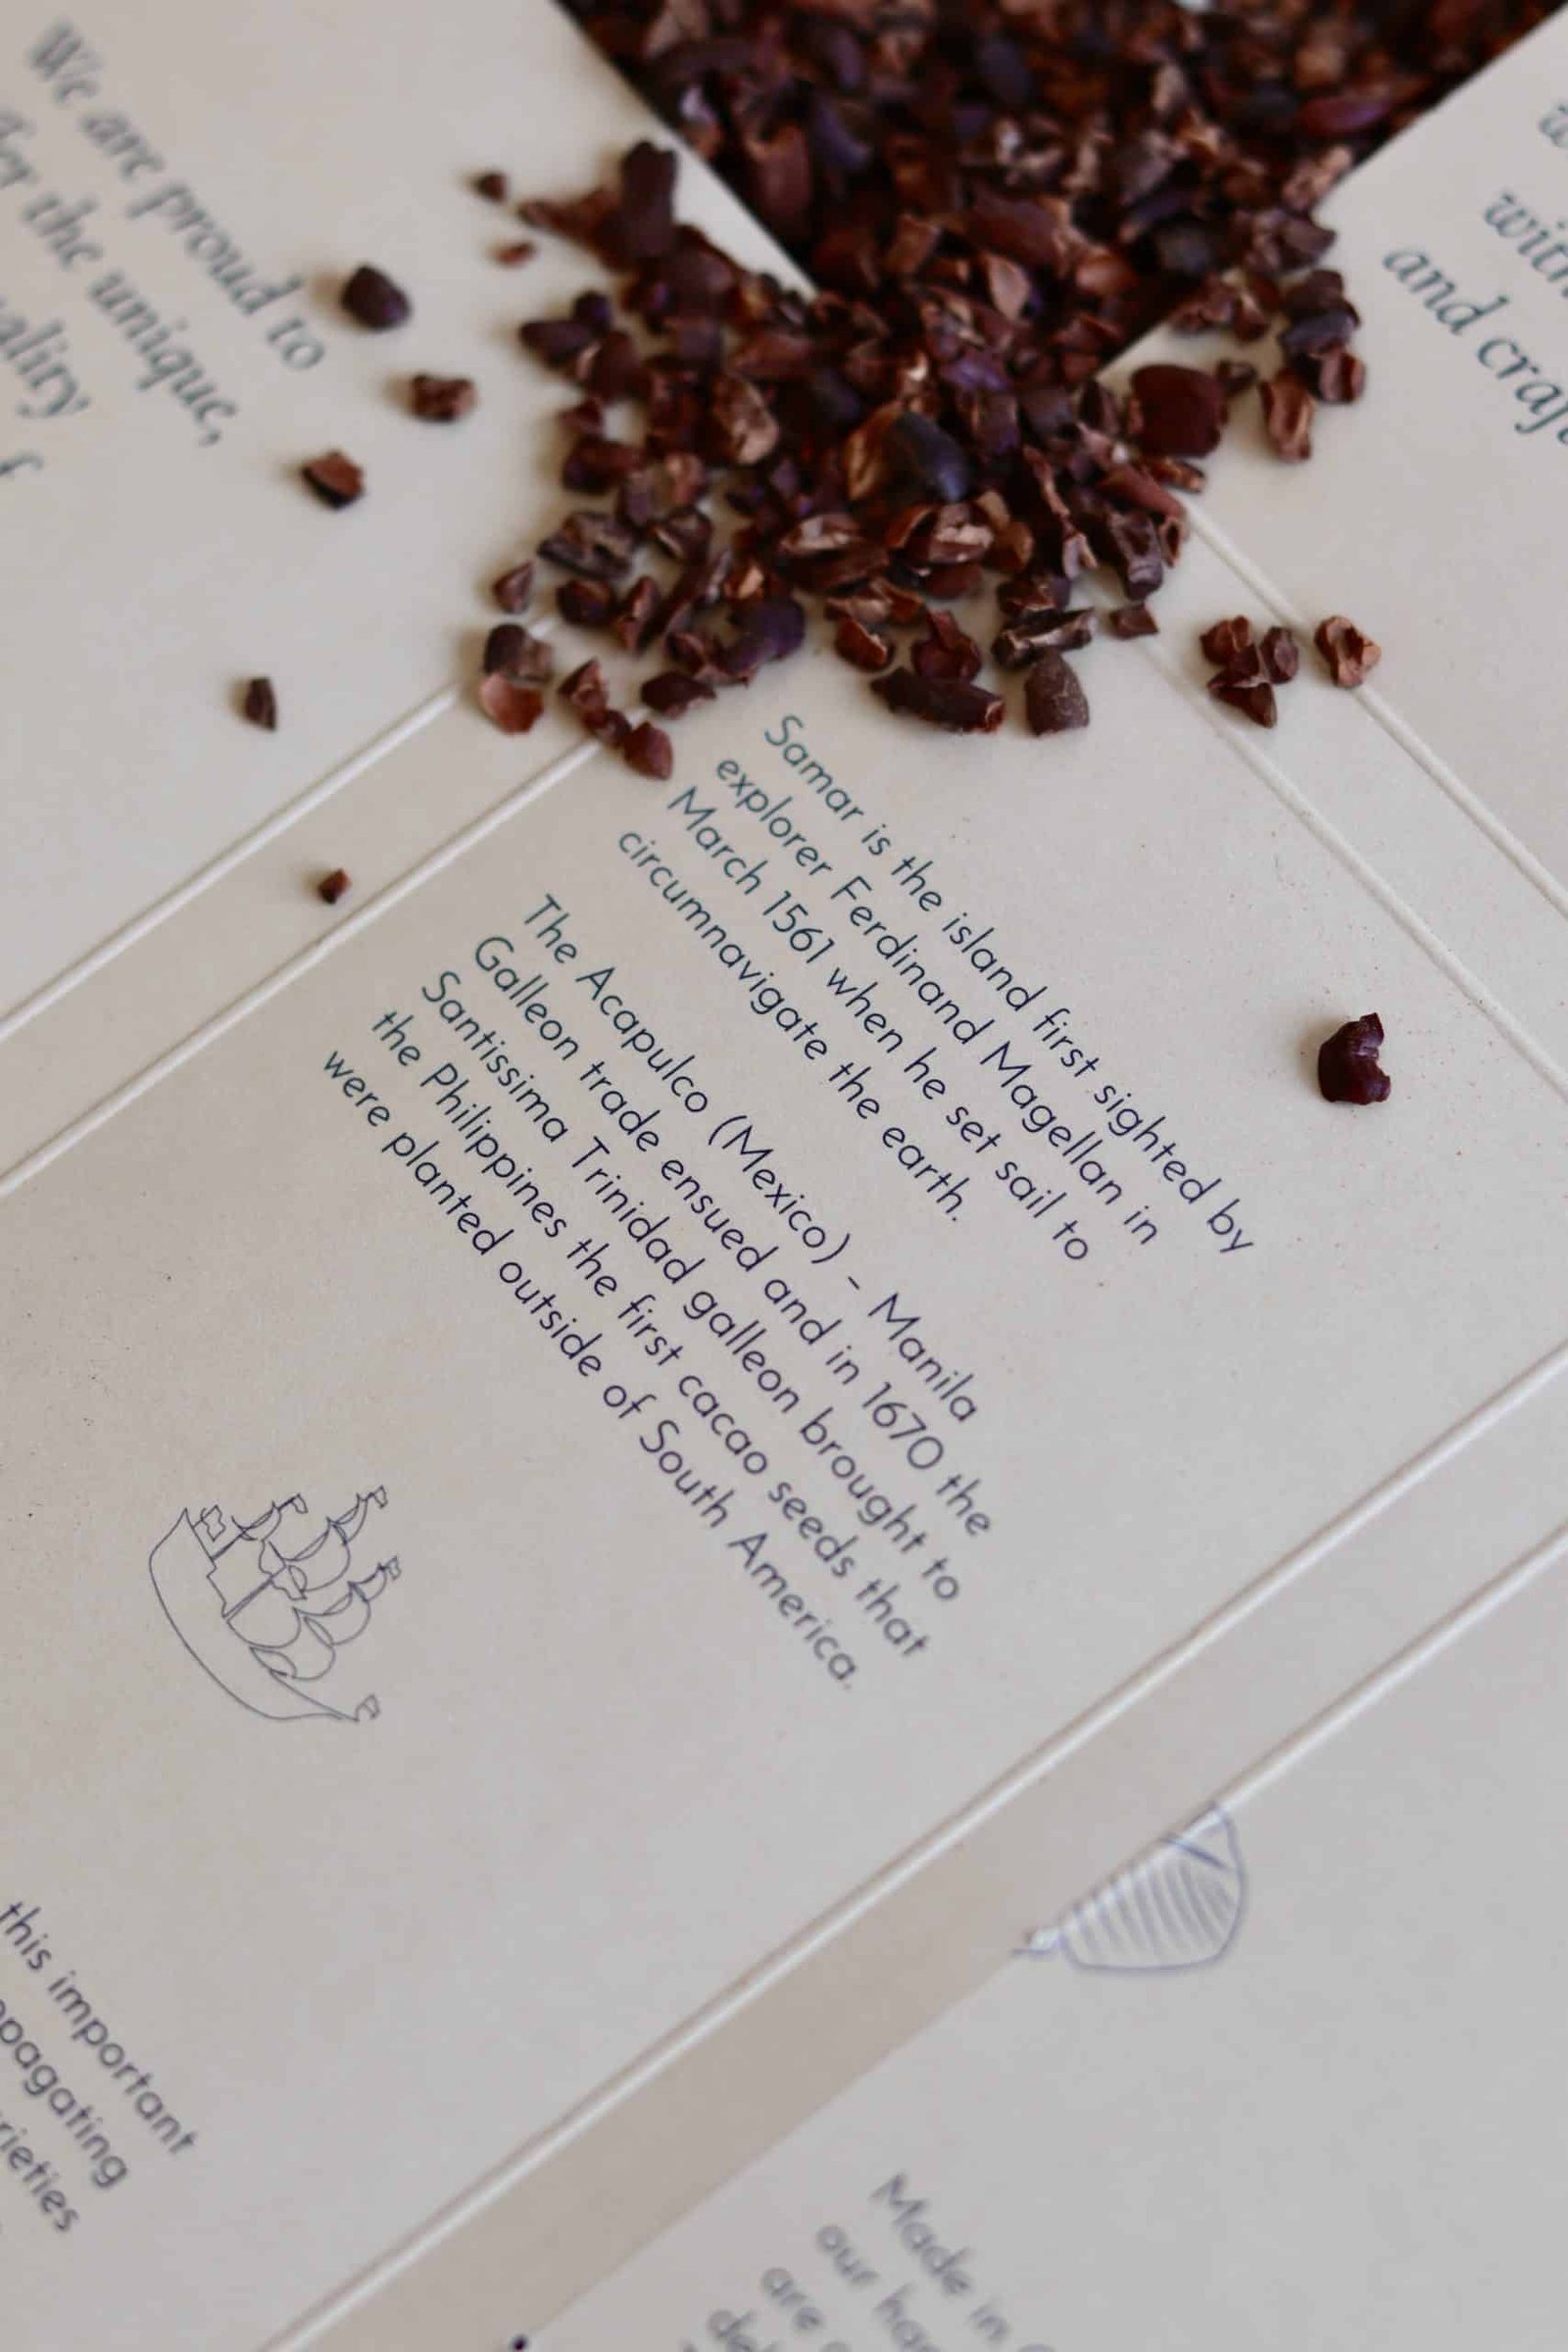 We are proud to
the unique,
and
Samar is the island first sighted by
explorer Ferdinand Magellan in
March 1561 when he set sail to
circumnavigate the earth.
The Acapulco (Mexico) - Manila
Galleon trade ensued and in 1670 the
Santissima Trinidad galleon brought to
the Philippines the first cacao seeds that
were planted outside of South America.
this important
Made in
our
are